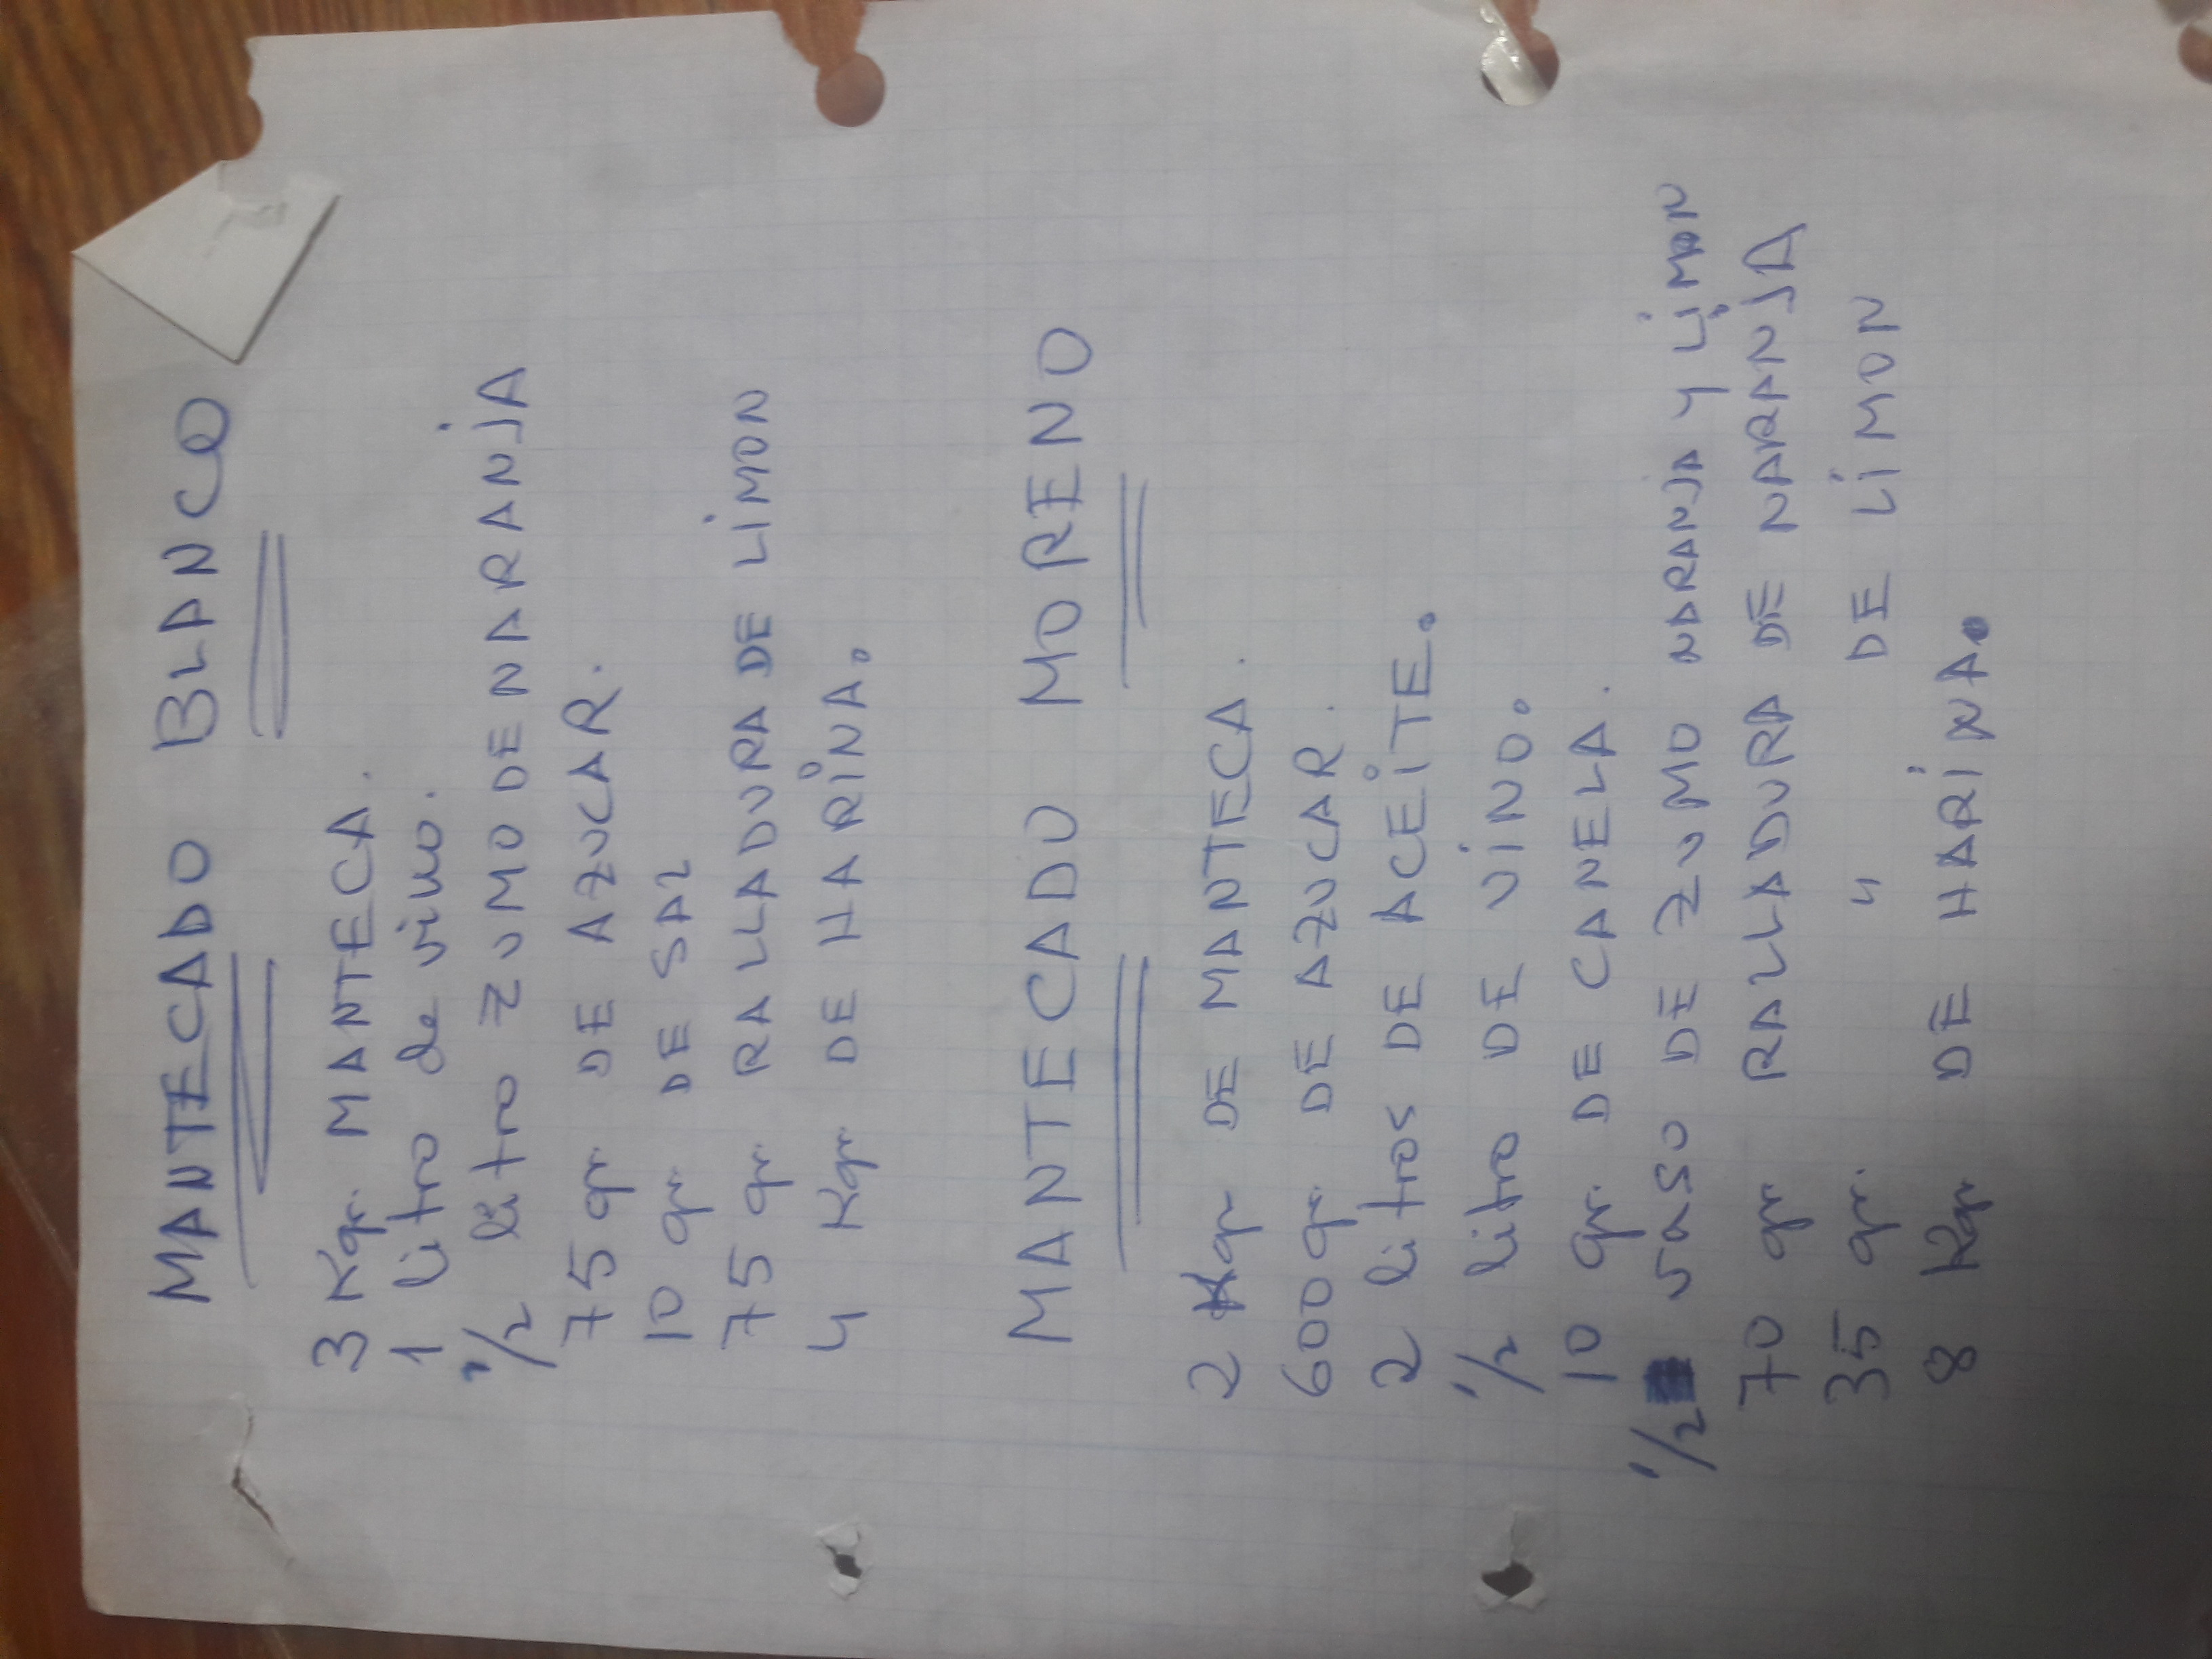 MANTECADO BLANCO
3 Kgr. MANTECA.
1 litro de vino.
1/2 litro ZUMO DE NARANJA
75 gr DE AZUCAR.
10 gr DE SAL
75 gr RALLADURA DE LIMON
4 Kgr DE HARINA.
MANTECADO MORENO
2 Kgr DE MANTECA.
600 gr. DE AZUCAR.
2 litros DE ACEITE.
1/2 litro DE VINO.
10 gr. DE CANELA.
1/2 vaso DE ZUMO NARANJA Y LIMON
70 gr RALLADURA DE NARANJA
35 gr. " DE LIMON
8 Kgr DE HARINA.